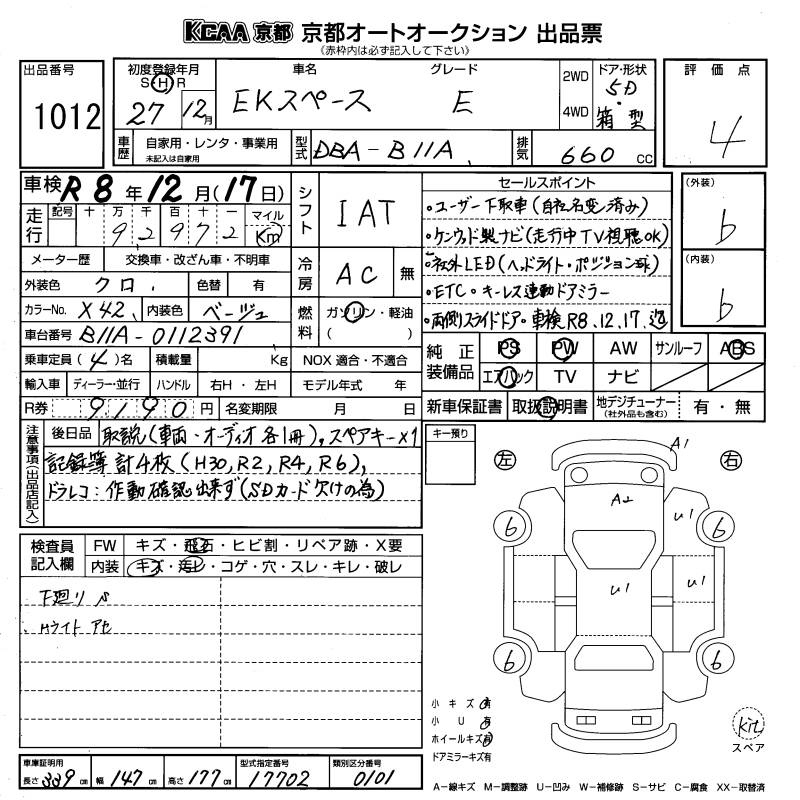 KCAA 京都 京都オートオークション 出品票
(赤枠内は必ず記入して下さい)
出品番号
1012
初度登録年月
S H R
27 12月
車名 グレード
EKスペース E
2WD
4WD
ドア・形状
5D
箱型
評価点
4
車歴
自家用・レンタ・事業用
未記入は自家用
型式
DBA-B11A
排気
660 CC
車検 R8年12月(17日)
走行
記号 十 万 千 百 十 一 マイル
9 2 9 7 2 Km
シフト
IAT
メーター歴 交換車・改ざん車・不明車
外装色 クロ 色替 有
冷房
AC 無
カラーNo. X42 内装色 ベージュ
車台番号 B11A-0112391
燃料
ガソリン・軽油
( )
乗車定員(4)名 積載量 Kg NOX 適合・不適合
輸入車 ディーラー・並行 ハンドル 右H・左H モデル年式 年
R券 9190円 名変期限 月 日
セールスポイント
・ユーザー下取車(自社名変済み)
・ケンウッド製ナビ(走行中TV視聴OK)
・社外LED(ヘッドライト・ポジション球)
・ETC・キーレス連動ドアミラー
・両側スライドドア・車検R8.12.17.迄
(外装)
b
(内装)
b
純正装備品
PS PW AW サンルーフ ABS
エアバック TV ナビ
新車保証書 取扱説明書 地デジチューナー(社外品も含む) 有・無
注意事項(出品店記入)
後日品 取説(車両・オーディオ各1冊),スペアキー×1
記録簿 計4枚(H30,R2,R4,R6),
ドラレコ:作動確認出来ず(SDカード欠けの為)
検査員記入欄
FW キズ・飛石・ヒビ割・リペア跡・X要
内装 キズ・汚レ・コゲ・穴・スレ・キレ・破レ
下廻り サビ
Hライト アセ
キー預り
左 右
A1
A2
U1
U1
U1
6 6
6 6
小キズ 有
小U 有
ホイールキズ有
ドアミラーキズ有
kit
スペア
車庫証明用
長さ 339cm 幅 147cm 高さ 177cm
型式指定番号
17702
類別区分番号
0101
A-線キズ M-調整跡 U-凹み W-補修跡 S-サビ C-腐食 XX-取替済